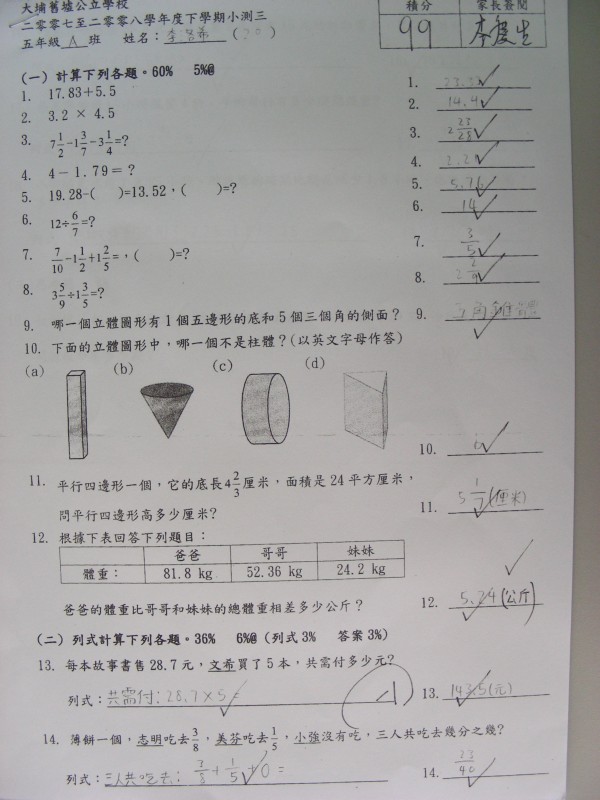 大埔舊墟公立學校
二零零七至二零零八學年度下學期小測三
五年級 A 班 姓名：李 (20)
積分 家長簽閱
99
(一) 計算下列各題。60% 5%@
1. 17.83+5.5 1.
2. 3.2 × 4.5 2. 14.4
3. 7 1/2 - 1 3/7 - 3 1/4 =? 3. 2 23/28
4. 4－1.79＝？ 4. 2.21
5. 19.28-( )=13.52，( )=? 5. 5.76
6. 12÷ 6/7 =? 6. 14
7. 7/10 - 1 1/2 + 1 2/5 =，( )=? 7. 3/5
8. 3 5/9 ÷ 1 3/5 =? 8. 2 2/9
9. 哪一個立體圖形有 1 個五邊形的底和 5 個三個角的側面？ 9.
10. 下面的立體圖形中，哪一個不是柱體？(以英文字母作答)
(a) (b) (c) (d)
10.
11. 平行四邊形一個，它的底長 4 2/3 厘米，面積是 24 平方厘米，
問平行四邊形高多少厘米？ 11. 5 1/7 (厘米)
12. 根據下表回答下列題目：
爸爸 哥哥 妹妹
體重： 81.8 kg 52.36 kg 24.2 kg
爸爸的體重比哥哥和妹妹的總體重相差多少公斤？ 12. 5.24 (公斤)
(二) 列式計算下列各題。36% 6%@ (列式 3% 答案 3%)
13. 每本故事書售 28.7 元，文希買了 5 本，共需付多少元？
列式：共需付：28.7×5= -1 13. 143.5(元)
14. 薄餅一個，志明吃去 3/8，美芬吃去 1/5，小強沒有吃，三人共吃去幾分之幾？
列式：三人共吃去： 3/8 + 1/5 + 0 = 14. 23/40